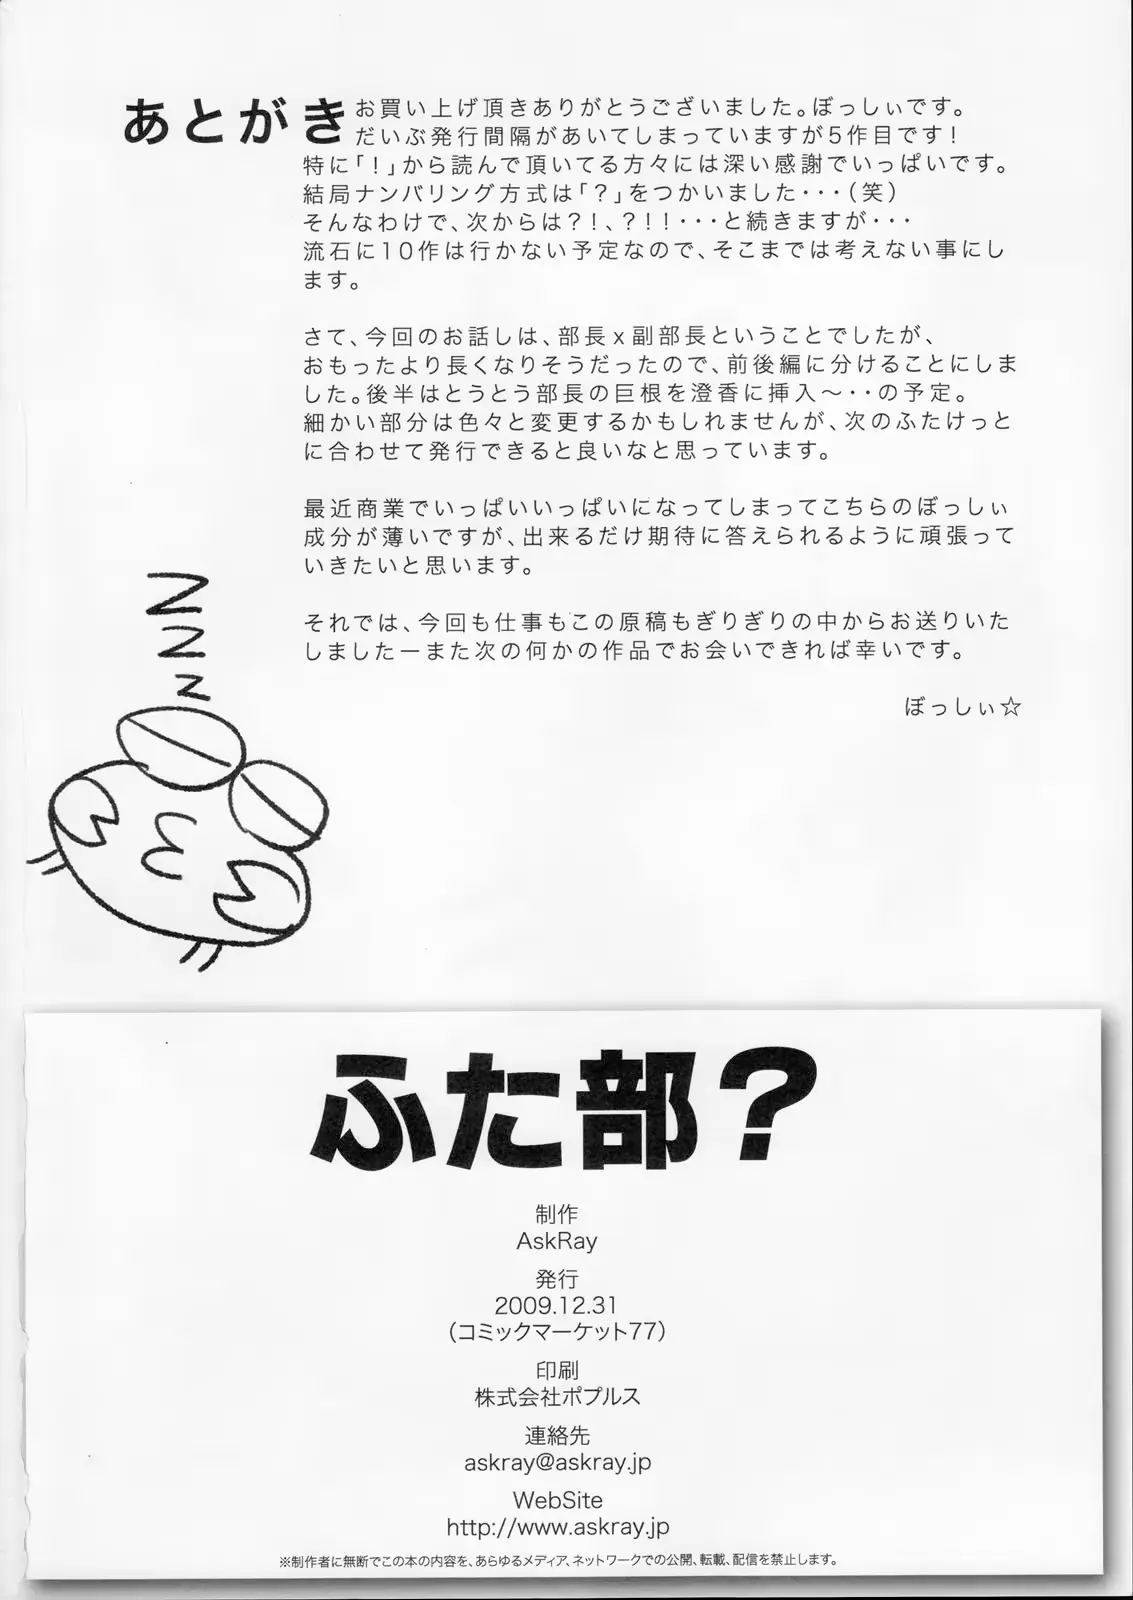 あとがき
お買い上げ頂きありがとうございました。ぼっしぃです。
だいぶ発行間隔があいてしまっていますが5作目です！
特に「！」から読んで頂いてる方々には深い感謝でいっぱいです。
結局ナンバリング方式は「？」をつかいました・・・（笑）
そんなわけで、次からは？！、？！！・・・と続きますが・・・
流石に10作は行かない予定なので、そこまでは考えない事にし
ます。
さて、今回のお話しは、部長x副部長ということでしたが、
おもったより長くなりそうだったので、前後編に分けることにしま
した。後半はとうとう部長の巨根を澄香に挿入～・・の予定。
細かい部分は色々と変更するかもしれませんが、次のふたけっと
に合わせて発行できると良いなと思っています。
最近商業でいっぱいいっぱいになってしまってこちらのぼっしぃ
成分が薄いですが、出来るだけ期待に答えられるように頑張って
いきたいと思います。
それでは、今回も仕事もこの原稿もぎりぎりの中からお送りいた
しましたーまた次の何かの作品でお会いできれば幸いです。
ぼっしぃ☆
ZZZ
ふた部？
制作
AskRay
発行
2009.12.31
（コミックマーケット77）
印刷
株式会社ポプルス
連絡先
askray@askray.jp
WebSite
http://www.askray.jp
※制作者に無断でこの本の内容を、あらゆるメディア、ネットワークでの公開、転載、配信を禁止します。